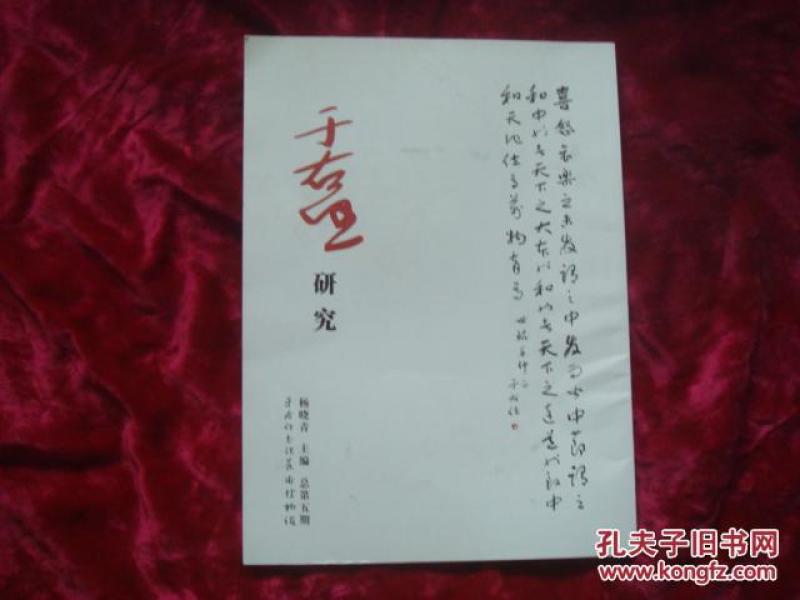 喜怒哀樂之未發謂之中發而皆中節謂之
和中也者天下之大本也和也者天下之達道也致中
和天地位焉萬物育焉
于右任
于右任
研究
杨晓青 主编 总第五期
孔夫子旧书网
www.kongfz.com